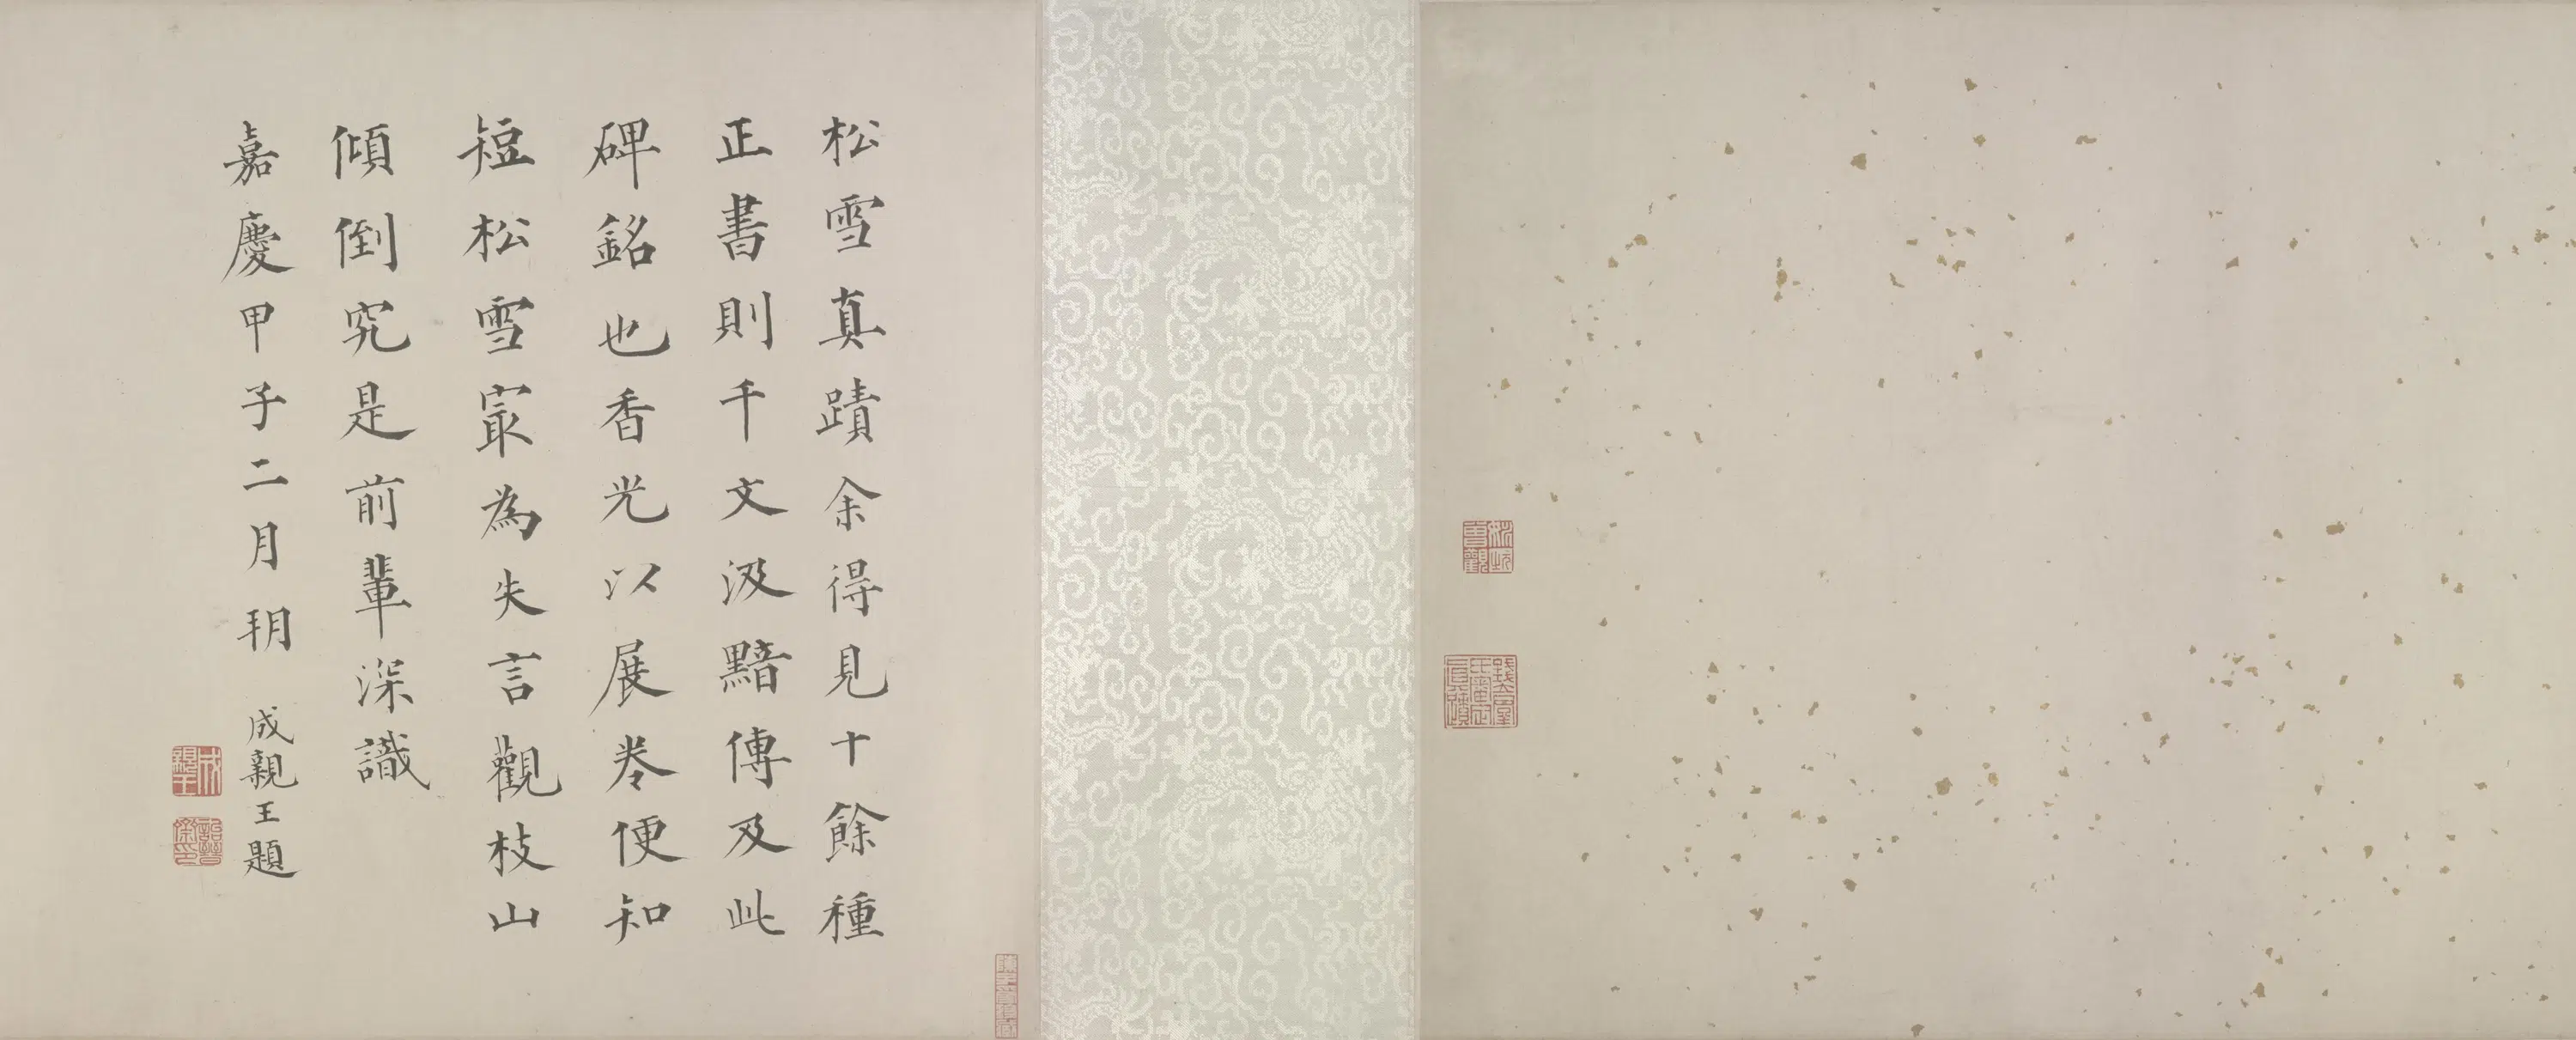 松雪真蹟余得見十餘種
正書則千文汲黯傳及此
碑銘也香光以展卷便知
短松雪㝡為失言觀枝山
傾倒究是前輩深識
嘉慶甲子二月朔 成親王題
成親王
詒晉齋印